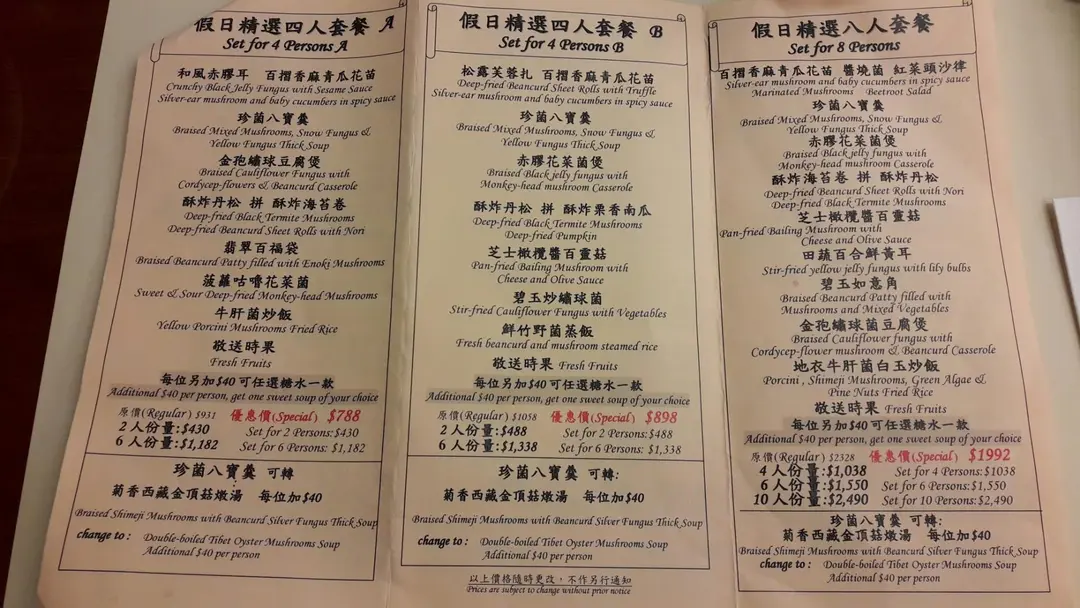 假日精選四人套餐 A
Set for 4 Persons A
和風赤膠耳 百摺香麻青瓜花苗
Crunchy Black Jelly Fungus with Sesame Sauce
Silver-ear mushroom and baby cucumbers in spicy sauce
珍菌八寶羹
Braised Mixed Mushrooms, Snow Fungus &
Yellow Fungus Thick Soup
金孢繡球豆腐煲
Braised Cauliflower Fungus with
Cordycep-flowers & Beancurd Casserole
酥炸丹松 拼 酥炸海苔卷
Deep-fried Black Termite Mushrooms
Deep-fried Beancurd Sheet Rolls with Nori
翡翠百福袋
Braised Beancurd Patty filled with Enoki Mushrooms
菠蘿咕嚕花菜菌
Sweet & Sour Deep-fried Monkey-head Mushrooms
牛肝菌炒飯
Yellow Porcini Mushrooms Fried Rice
敬送時果
Fresh Fruits
每位另加$40可任選糖水一款
Additional $40 per person, get one sweet soup of your choice
原價(Regular) $931 優惠價(Special) $788
2 人份量:$430 Set for 2 Persons:$430
6 人份量:$1,182 Set for 6 Persons: $1,182
珍菌八寶羹 可轉:
菊香西藏金頂菇燉湯 每位加$40
Braised Shimeji Mushrooms with Beancurd Silver Fungus Thick Soup
change to : Double-boiled Tibet Oyster Mushrooms Soup
Additional $40 per person
假日精選四人套餐 B
Set for 4 Persons B
松露芙蓉扎 百摺香麻青瓜花苗
Deep-fried Beancurd Sheet Rolls with Truffle
Silver-ear mushroom and baby cucumbers in spicy sauce
珍菌八寶羹
Braised Mixed Mushrooms, Snow Fungus &
Yellow Fungus Thick Soup
赤膠花菜菌煲
Braised Black jelly fungus with
Monkey-head mushroom Casserole
酥炸丹松 拼 酥炸栗香南瓜
Deep-fried Black Termite Mushrooms
Deep-fried Pumpkin
芝士橄欖醬百靈菇
Pan-fried Bailing Mushroom with
Cheese and Olive Sauce
碧玉炒繡球菌
Stir-fried Cauliflower Fungus with Vegetables
鮮竹野菌蒸飯
Fresh beancurd and mushroom steamed rice
敬送時果 Fresh Fruits
每位另加$40可任選糖水一款
Additional $40 per person, get one sweet soup of your choice
原價(Regular) $1058 優惠價(Special) $898
2 人份量:$488 Set for 2 Persons:$488
6 人份量:$1,338 Set for 6 Persons: $1,338
珍菌八寶羹 可轉:
菊香西藏金頂菇燉湯 每位加$40
Braised Shimeji Mushrooms with Beancurd Silver Fungus Thick Soup
change to : Double-boiled Tibet Oyster Mushrooms Soup
Additional $40 per person
以上價格隨時更改，不作另行通知
Prices are subject to change without prior notice
假日精選八人套餐
Set for 8 Persons
百摺香麻青瓜花苗 醬燒菌 紅菜頭沙律
Silver-ear mushroom and baby cucumbers in spicy sauce
Marinated Mushrooms Beetroot Salad
珍菌八寶羹
Braised Mixed Mushrooms, Snow Fungus &
Yellow Fungus Thick Soup
赤膠花菜菌煲
Braised Black jelly fungus with
Monkey-head mushroom Casserole
酥炸海苔卷 拼 酥炸丹松
Deep-fried Beancurd Sheet Rolls with Nori
Deep-fried Black Termite Mushrooms
芝士橄欖醬百靈菇
Pan-fried Bailing Mushroom with
Cheese and Olive Sauce
田蔬百合鮮黃耳
Stir-fried yellow jelly fungus with lily bulbs
碧玉如意角
Braised Beancurd Patty filled with
Mushrooms and Mixed Vegetables
金孢繡球菌豆腐煲
Braised Cauliflower fungus with
Cordycep-flower mushroom & Beancurd Casserole
地衣牛肝菌白玉炒飯
Porcini , Shimeji Mushrooms, Green Algae &
Pine Nuts Fried Rice
敬送時果 Fresh Fruits
每位另加$40可任選糖水一款
Additional $40 per person, get one sweet soup of your choice
原價(Regular) $2328 優惠價(Special) $1992
4 人份量:$1,038 Set for 4 Persons:$1038
6 人份量:$1,550 Set for 6 Persons:$1,550
10 人份量:$2,490 Set for 10 Persons:$2,490
珍菌八寶羹 可轉:
菊香西藏金頂菇燉湯 每位加$40
Braised Shimeji Mushrooms with Beancurd Silver Fungus Thick Soup
change to : Double-boiled Tibet Oyster Mushrooms Soup
Additional $40 per person